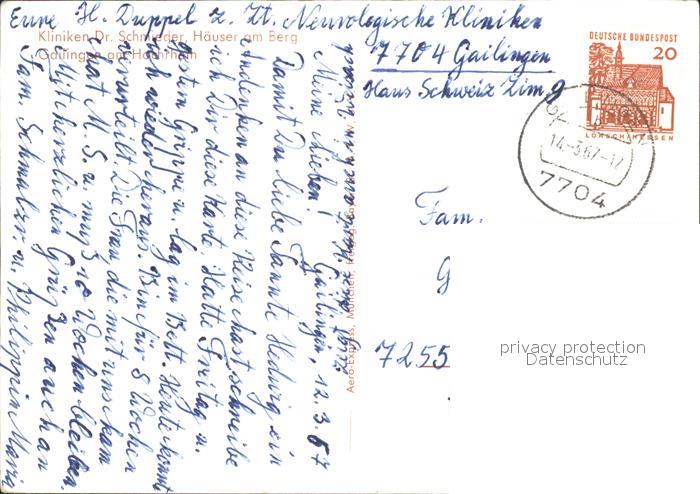 Eure H. Duppel z. Zt. Neurologische Kliniken
7704 Gailingen
Haus Schweiz Zim. 9
Kliniken Dr. Schmieder, Häuser am Berg
Gailingen am Hochrhein
DEUTSCHE BUNDESPOST
20
LORSCH/HESSEN
14.-3.67.-17
7704
Gailingen, 12.3.67
Meine Lieben!
Damit Du liebe Tante Hedwig ein
Andenken an diese Reise hast, schreibe
ich Dir diese Karte. Hatte Freitag u.
gestern Grippe u. lag im Bett. Heute kommt
wieder heraus. Bin für 8 Wochen
verurteilt. Die Frau die mit uns kam
hat M.S. u. muß 10 Wochen bleiben.
Mit herzlichen Grüßen auch an
Fam. Schmalzr u. Philippin Maria
Aero-Express, München,
Fam.
G
7255
privacy protection
Datenschutz